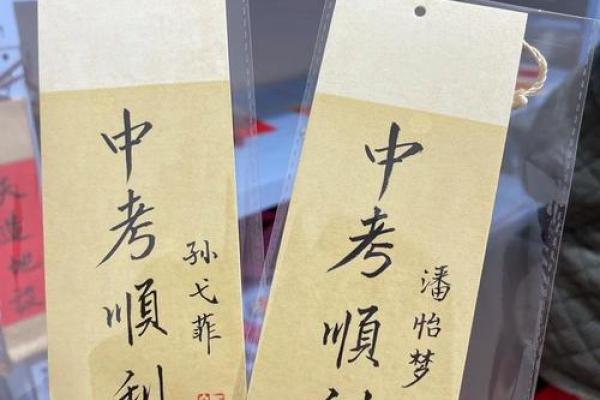 中考順利
孙弋菲
中考順
潘怡梦
天造地設